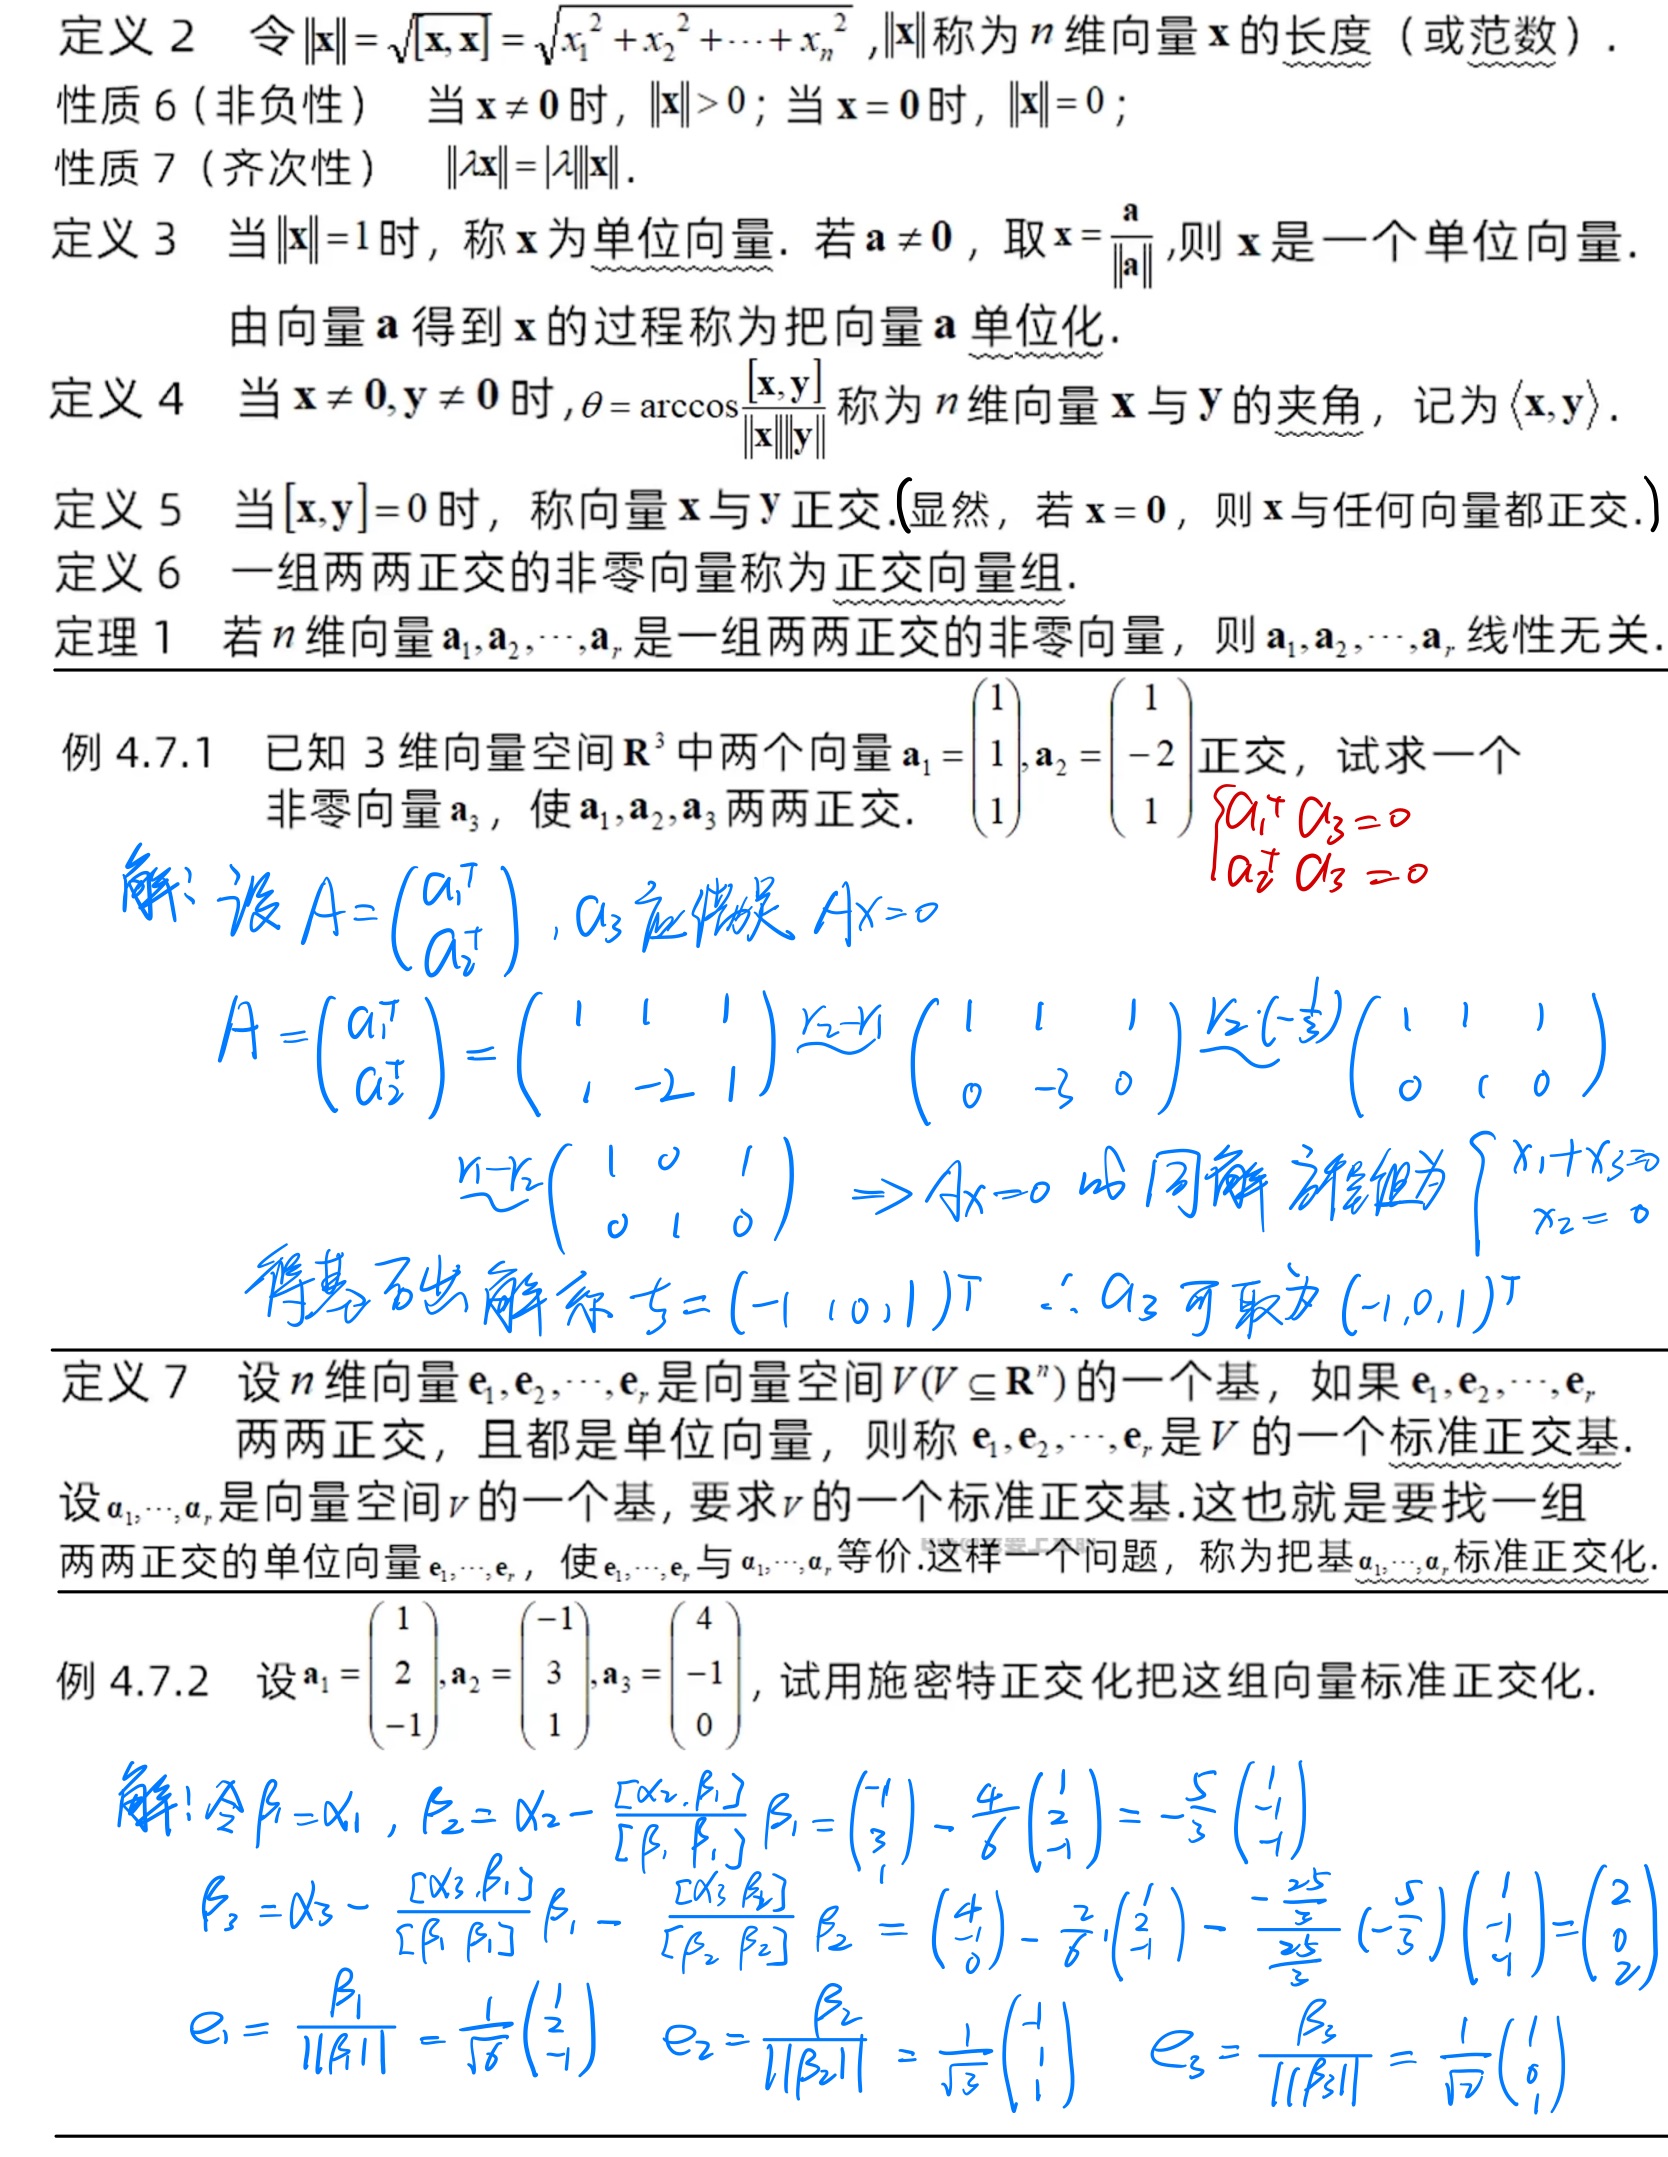 定义 2 令 ||x|| = √[x, x] = √(x₁² + x₂² + ⋯ + xₙ²) , ||x|| 称为 n 维向量 x 的长度（或范数）.
性质 6（非负性） 当 x ≠ 0 时, ||x|| > 0 ; 当 x = 0 时, ||x|| = 0 ;
性质 7（齐次性） ||λx|| = |λ| ||x|| .
定义 3 当 ||x|| = 1 时, 称 x 为单位向量. 若 a ≠ 0 , 取 x = a/||a|| , 则 x 是一个单位向量.
由向量 a 得到 x 的过程称为把向量 a 单位化.
定义 4 当 x ≠ 0, y ≠ 0 时, θ = arccos [x, y]/(||x|| ||y||) 称为 n 维向量 x 与 y 的夹角, 记为 ⟨x, y⟩ .
定义 5 当 [x, y] = 0 时, 称向量 x 与 y 正交. (显然, 若 x = 0 , 则 x 与任何向量都正交.)
定义 6 一组两两正交的非零向量称为正交向量组.
定理 1 若 n 维向量 a₁, a₂, ⋯, aᵣ 是一组两两正交的非零向量, 则 a₁, a₂, ⋯, aᵣ 线性无关.
例 4.7.1 已知 3 维向量空间 R³ 中两个向量 a₁ = (1 1 1), a₂ = (1 −2 1) 正交, 试求一个
非零向量 a₃ , 使 a₁, a₂, a₃ 两两正交.
{ a₁ᵀ a₃ = 0
a₂ᵀ a₃ = 0
解: 设 A = (a₁ᵀ a₂ᵀ) , a₃ 应满足 Ax = 0
A = (a₁ᵀ a₂ᵀ) = (1 1 1 ; 1 −2 1) r₂−r₁ (1 1 1 ; 0 −3 0) r₂·(−1/3) (1 1 1 ; 0 1 0)
r₁−r₂ (1 0 1 ; 0 1 0) ⇒ Ax = 0 的同解方程组为 { x₁+x₃=0 x₂ = 0
得基础解系 ξ = (−1, 0, 1)ᵀ ∴ a₃ 可取为 (−1, 0, 1)ᵀ
定义 7 设 n 维向量 e₁, e₂, ⋯, eᵣ 是向量空间 V(V ⊆ Rⁿ) 的一个基, 如果 e₁, e₂, ⋯, eᵣ
两两正交, 且都是单位向量, 则称 e₁, e₂, ⋯, eᵣ 是 V 的一个标准正交基.
设 α₁, ⋯, αᵣ 是向量空间 V 的一个基, 要求 V 的一个标准正交基. 这也就是要找一组
两两正交的单位向量 e₁, ⋯, eᵣ , 使 e₁, ⋯, eᵣ 与 α₁, ⋯, αᵣ 等价. 这样一个问题, 称为把基 α₁, ⋯, αᵣ 标准正交化.
例 4.7.2 设 a₁ = (1 2 −1), a₂ = (−1 3 1), a₃ = (4 −1 0) , 试用施密特正交化把这组向量标准正交化.
解: 令 β₁ = α₁ , β₂ = α₂ − [α₂, β₁]/[β₁ β₁] β₁ = (−1 3 1) − 4/6 (1 2 −1) = −5/3 (1 −1 −1)
β₃ = α₃ − [α₃, β₁]/[β₁ β₁] β₁ − [α₃ β₂]/[β₂ β₂] β₂ = (4 −1 0) − 2/6 · (1 2 −1) − (−25/3)/(25/3) (−5/3) (1 −1 −1) = (2 0 2)
e₁ = β₁/||β₁|| = 1/√6 (1 2 −1) e₂ = β₂/||β₂|| = 1/√3 (−1 1 1) e₃ = β₃/||β₃|| = 1/√2 (1 0 1)